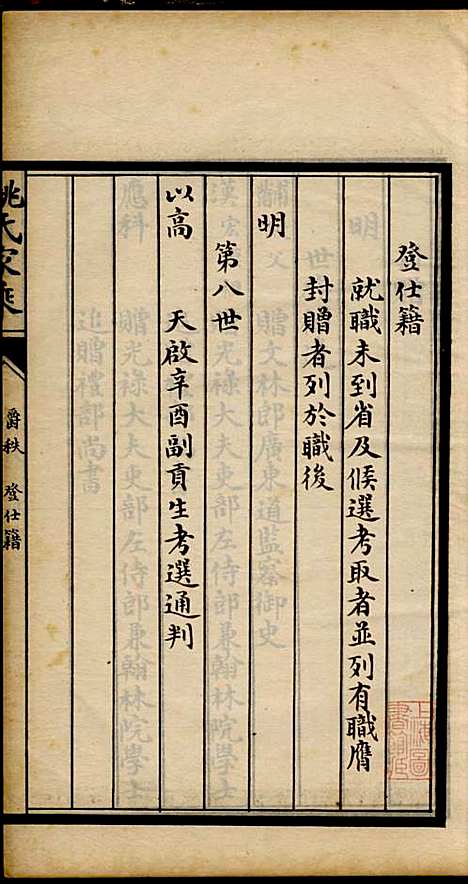 登仕籍
就職未到省及候選考取者並列有職膺
封贈者列於職後
明
第八世
以高　天啟辛酉副貢生考選通判
姚氏家乘
爵秩　登仕籍